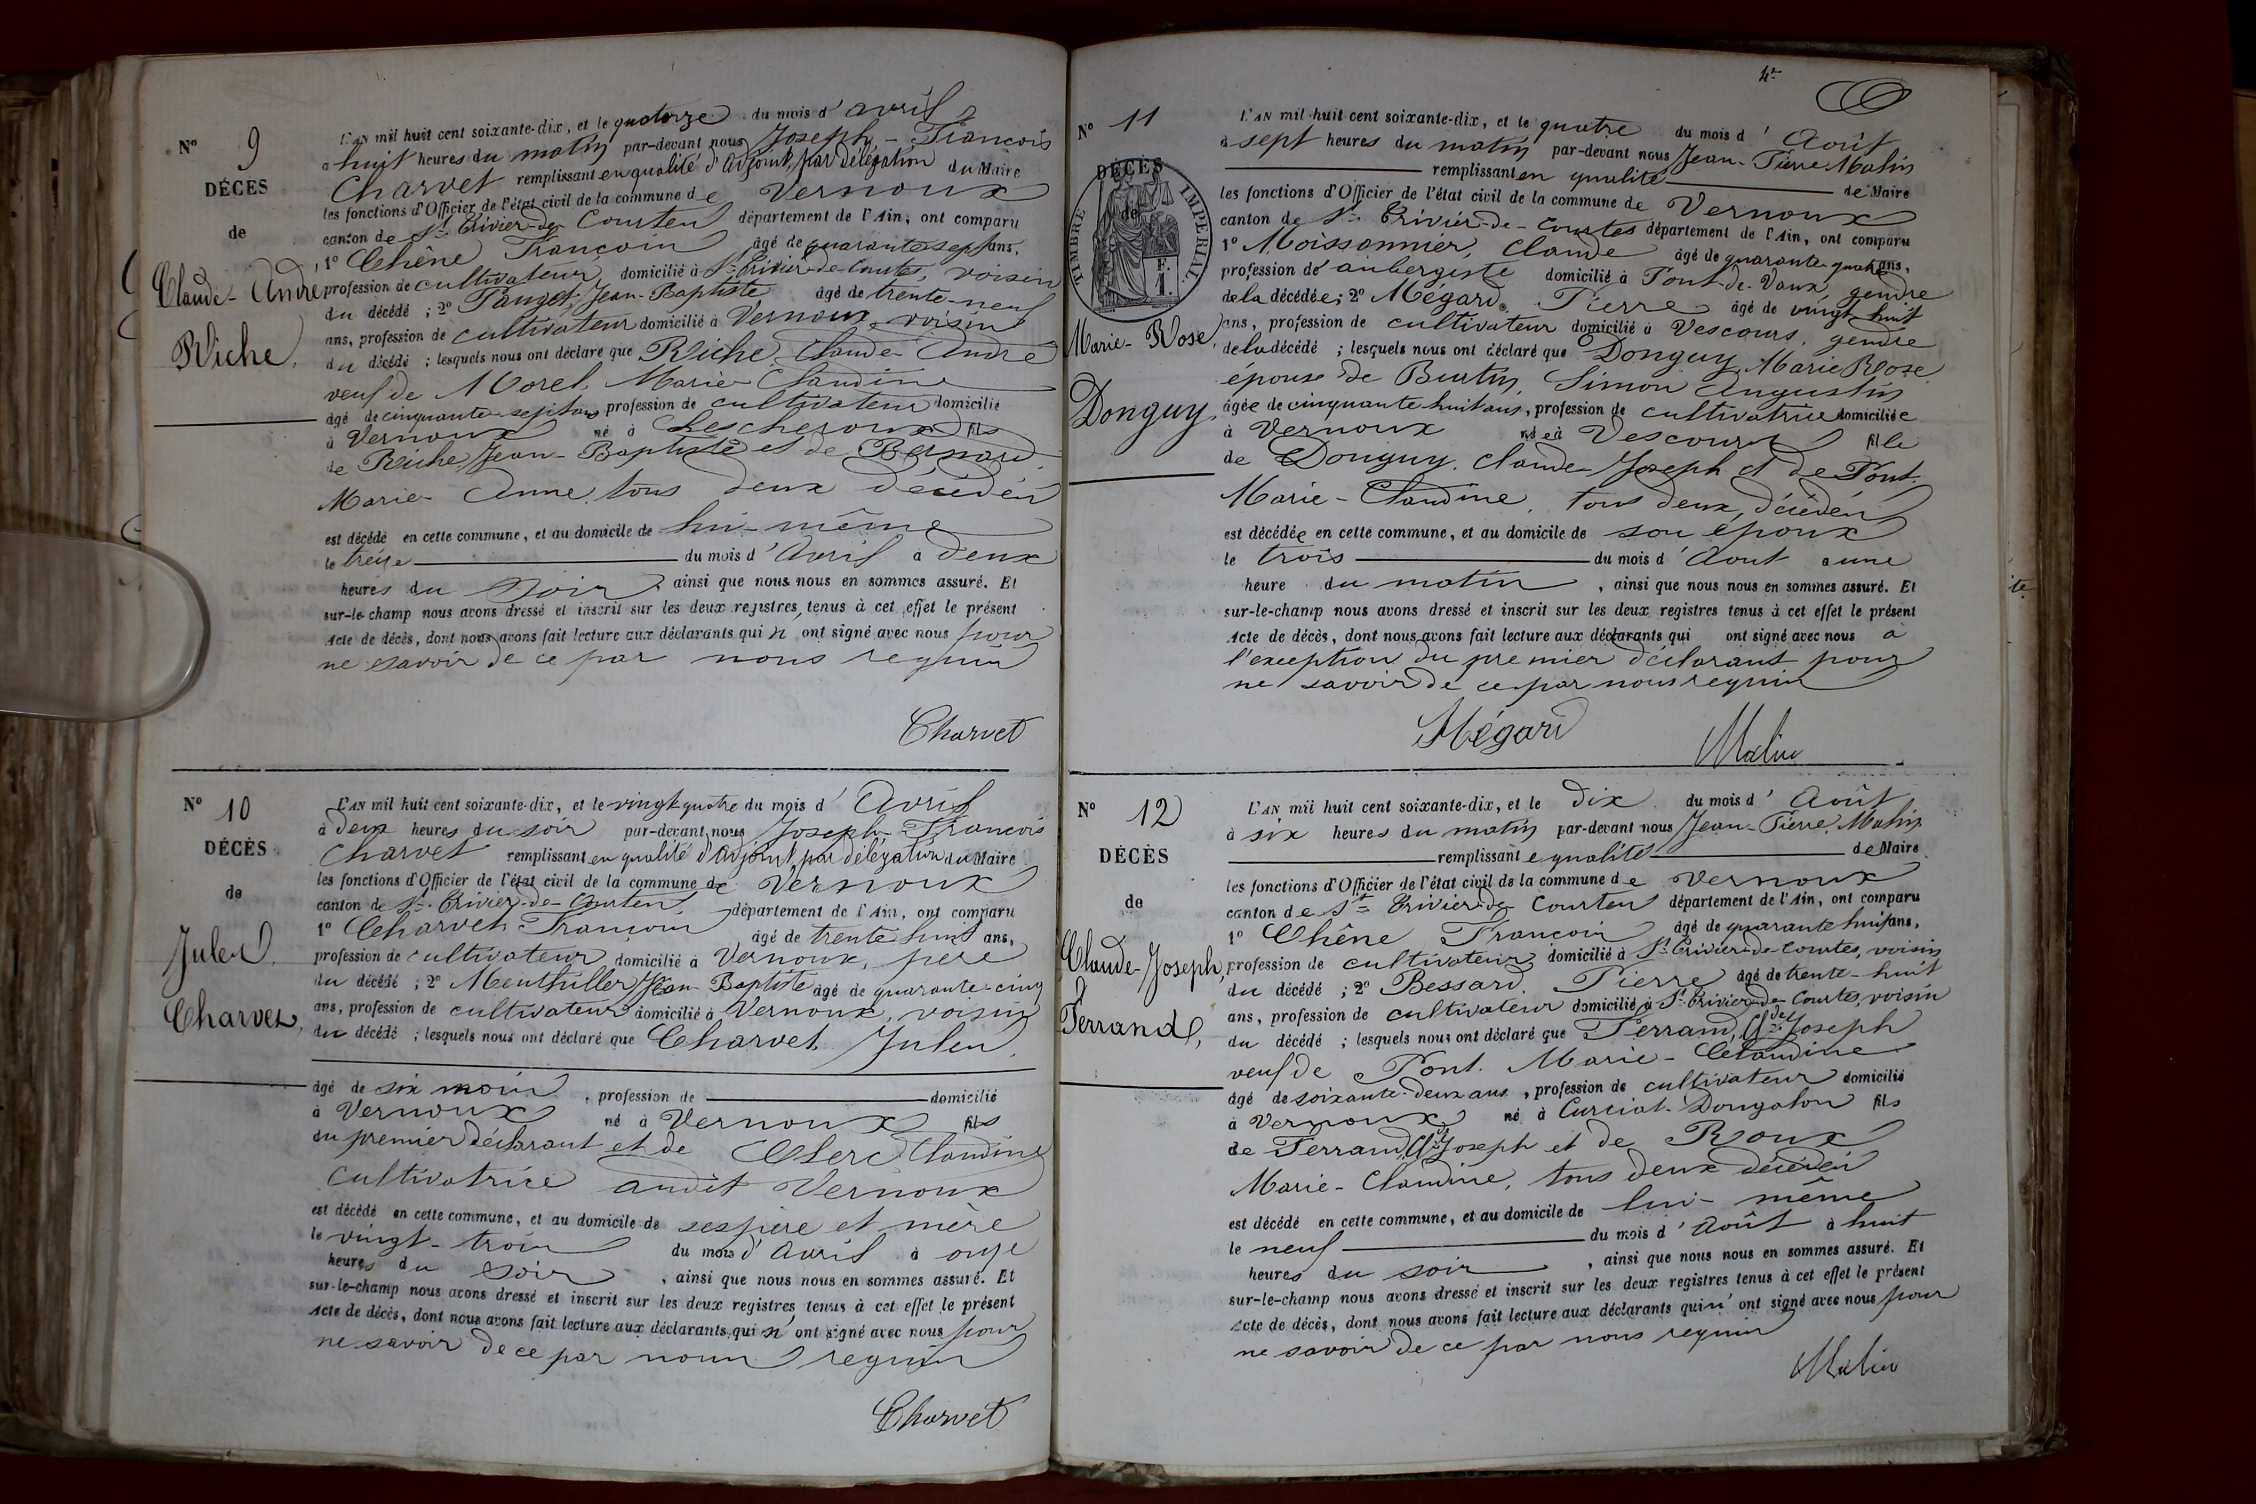 N° 9
DÉCÈS
de
Claude-André
Riche.
L'AN mil huit cent soixante-dix, et le quatorze du mois d'avril
à huit heures du matin par-devant nous Joseph-François
Charvet remplissant en qualité d'adjoint, par délégation du Maire
les fonctions d'Officier de l'état civil de la commune de Vernoux
canton de St Trivier-de-Courtes département de l'Ain, ont comparu
1° Chêne François âgé de quarante sept ans,
profession de cultivateur, domicilié à St Trivier-de-Courtes, voisin
du décédé ; 2° Pauget, Jean-Baptiste âgé de trente-neuf
ans, profession de cultivateur domicilié à Vernoux, voisin
du décédé ; lesquels nous ont déclaré que Riche, Claude André
veuf de Morel, Marie-Claudine
âgé de cinquante-sept ans profession de cultivateur domicilié
à Vernoux né à Lescheroux fils
de Riche, Jean-Baptiste et de Bernard
Marie-Anne, tous deux décédés
est décédé en cette commune, et au domicile de lui-même
le treize du mois d'avril à deux
heures du soir ainsi que nous nous en sommes assuré. Et
sur-le-champ nous avons dressé et inscrit sur les deux registres tenus à cet effet le présent
Acte de décès, dont nous avons fait lecture aux déclarants qui n'ont signé avec nous pour
ne savoir de ce par nous requis
Charvet
N° 10
DÉCÈS
de
Jules
Charvet,
L'AN mil huit cent soixante-dix, et le vingt quatre du mois d'Avril
à deux heures du soir par-devant nous Joseph-François
Charvet remplissant en qualité d'adjoint, par délégation du Maire
les fonctions d'Officier de l'état civil de la commune de Vernoux
canton de St Trivier-de-Courtes, département de l'Ain, ont comparu
1° Charvet François âgé de trente huit ans,
profession de cultivateur domicilié à Vernoux, père
du décédé ; 2° Jean Baptiste âgé de quarante-cinq
ans, profession de cultivateur domicilié à Vernoux, voisin
du décédé ; lesquels nous ont déclaré que Charvet Jules
âgé de six mois, profession de domicilié
à Vernoux né à Vernoux fils
du premier déclarant et de Clerc Claudine
cultivatrice audit Vernoux
est décédé en cette commune, et au domicile de ses père et mère
le vingt-trois du mois d'Avril à onze
heures du soir, ainsi que nous nous en sommes assuré. Et
sur-le-champ nous avons dressé et inscrit sur les deux registres tenus à cet effet le présent
Acte de décès, dont nous avons fait lecture aux déclarants qui n'ont signé avec nous pour
ne savoir de ce par nous requis
Charvet
4e
N° 11
DÉCÈS
de
TIMBRE IMPÉRIAL
1 F.
Marie-Rose
Donguy
L'AN mil huit cent soixante-dix, et le quatre du mois d'Août
à sept heures du matin par-devant nous Jean-Pierre Malin
remplissant en qualité de Maire
les fonctions d'Officier de l'état civil de la commune de Vernoux
canton de St Trivier-de-Courtes département de l'Ain, ont comparu
1° Moissonnier, Claude âgé de quarante quatre ans,
profession de aubergiste domicilié à Pont-de-Vaux, gendre
de la décédée; 2° Mégard, Pierre âgé de vingt huit
ans, profession de cultivateur domicilié à Vescours, gendre
de la décédé ; lesquels nous ont déclaré que Donguy, Marie Rose
épouse de Burtin, Simon Augustin
âgée de cinquante huit ans, profession de cultivatrice domiciliée
à Vernoux née à Vescours fille
de Donguy, Claude Joseph et de Pont,
Marie-Claudine, tous deux, décédés
est décédée en cette commune, et au domicile de son époux
le trois du mois d'Aout à une
heure du matin, ainsi que nous nous en sommes assuré. Et
sur-le-champ nous avons dressé et inscrit sur les deux registres tenus à cet effet le présent
Acte de décès, dont nous avons fait lecture aux déclarants qui ont signé avec nous à
l'exception du premier déclarant pour
ne savoir de ce par nous requis
Mégard Malin
N° 12
DÉCÈS
de
Claude-Joseph,
Ferrand,
L'AN mil huit cent soixante-dix, et le dix du mois d'Août
à six heures du matin par-devant nous Jean-Pierre Malin
remplissant e qualité de Maire
les fonctions d'Officier de l'état civil de la commune de Vernoux
canton de St Trivier-de-Courtes département de l'Ain, ont comparu
1° Chêne François âgé de quarante huit ans,
profession de cultivateur domicilié à St Trivier-de-Courtes, voisin
du décédé ; 2° Bessard, Pierre âgé de trente-huit
ans, profession de cultivateur domicilié à St Trivier-de-Courtes, voisin
du décédé ; lesquels nous ont déclaré que Ferrand, Cl de Joseph
veuf de Pont. Marie-Claudine
âgé de soixante-deux ans, profession de cultivateur domicilié
à Vernoux né à Curciat-Dongalon fils
de Ferrand, Cl de Joseph et de Roux
Marie-Claudine, tous deux décédés
est décédé en cette commune, et au domicile de lui-même
le neuf du mois d'Août à huit
heures du soir, ainsi que nous nous en sommes assuré. Et
sur-le-champ nous avons dressé et inscrit sur les deux registres tenus à cet effet le présent
Acte de décès, dont nous avons fait lecture aux déclarants qui n'ont signé avec nous pour
ne savoir de ce par nous requis
Malin